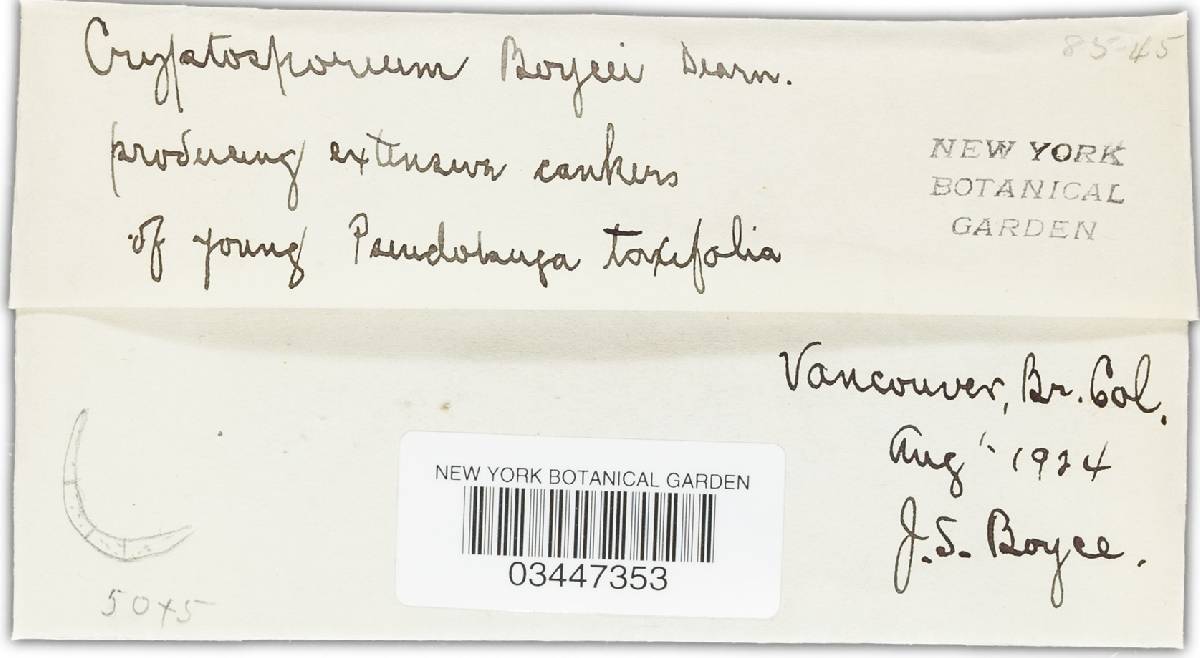 Cryptosporium Boycei Dearn.
85-45
producing extensive cankers
of young Pseudotsuga taxifolia
NEW YORK
BOTANICAL
GARDEN
Vancouver, Br. Col.
Aug 1924
J.S. Boyce.
NEW YORK BOTANICAL GARDEN
03447353